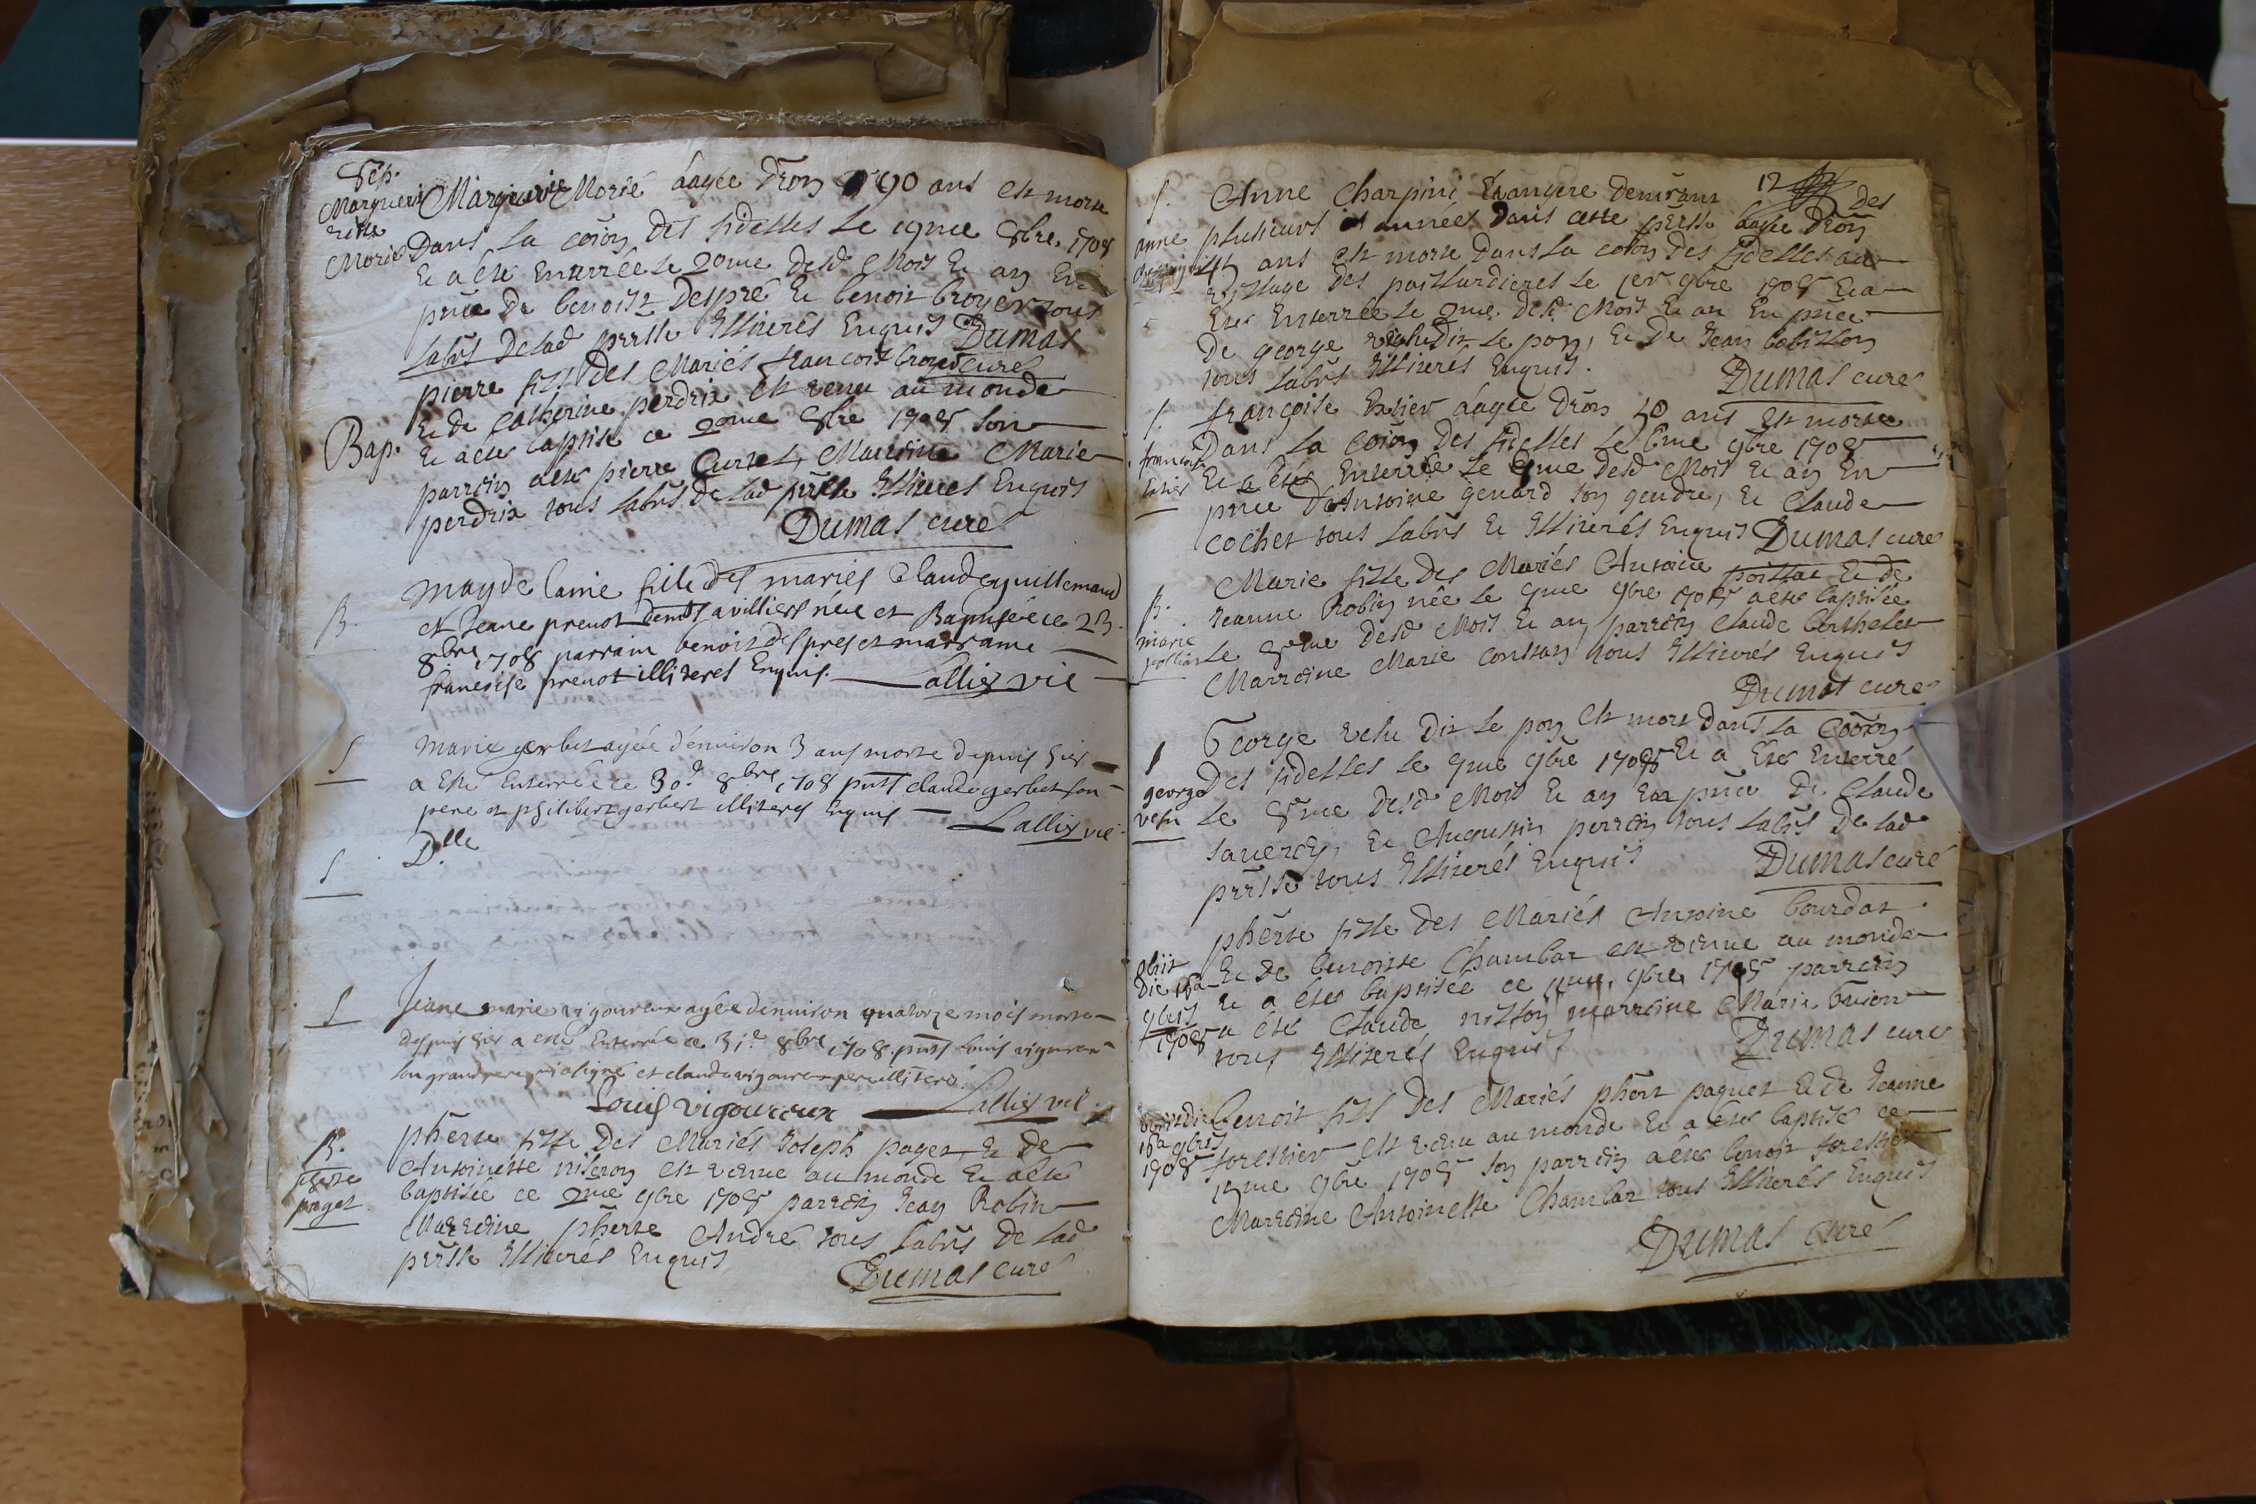 Sep.
Marguerite Morié áagée dron 90 ans est morte
Dans la coion des fidelles le 19me 8bre 1708
Et a été Enterrée le 20me desd Mois Et an En
pnce De benoist Despré Et benoit broyer tous
labrs Delad prrsse Illiterés Enquis Dumas
curé
pierre fils Des Mariés francois broyer
Bap.
Et de Catherine perdrix est venu au monde
Et a été baptisé ce 20me 8bre 1708 son
parrein a été pierre Curtet, Marreine Marie
perdrix tous labrs de lad prrsse Illiterés Enquis
Dumas curé
B.
magdelaine fille des mariés Claude guillemaud
et Jeane prenot demts a villiers née et Baptisée ce 23
8bre 1708 parrain benoit despres et marraine
francoise prenot illiteres Enquis. Lallix vic
S
Marie gerbet agée d'enuiron 3 ans morte depuis hier
a Esté Enterrée ce 30e 8bre 1708 pnts claude gerbet son
pere et philibert gerbert illiteres Enquis Lallix vic
S
D.lle
S
Jeane marie vigoureux agée d'enuiron quatorze mois morte
depuis hier a esté Enterrée ce 31e 8bre 1708 pnts Louis vigoureux
son grand pere qui a signé et claude vigoureux pere illiteré.
Louis vigoureux Lallix vic
B.
pherte paget
pherte fille Des Mariés Joseph paget Et De
Antoinette est venue au monde Et a été
baptisée ce 2me 9bre 1708 parrein Jean Robin
Marreine pherte André tous labrs De lad
prrsse Illiterés Enquis
Dumas curé
12
S.
Anne Charpini Etrangere demeurant des
plusieurs années dans cette prrsse áagée dron
45 ans est morte Dans la coion des fidelles au
village des paillardieres le 1er 9bre 1708 Et a
Eté Enterrée le 2me desd Mois Et an En pnce
De george velu Dit le pon, Et de Jean
tous labrs Illiterés Enquis.
Dumas curé
S.
françoise áagée dron 50 ans est morte
Dans la coion Des fidelles le 9bre 1708
Et a été Enterrée le desd Mois Et an En
pnce D'Antoine genard son gendre, Et Claude
cochet tous labrs Et Illiterés Enquis Dumas curé
B.
Marie fille Des Mariés Antoine Et de
Jeanne Robin née le 7me 9bre 1708 a été baptisée
le 8me desd Mois Et an parrein Claude berthelet
Marreine Marie tous Illiterés Enquis
Dumas curé
S
george velu
George velu Dit le pon Est mort Dans la Coion
Des fidelles le 7me 9bre 1708 Et a Eté Enterré
le 8me desd Mois Et an En pnce De Claude
Et Augustin perrein tous labrs De lad
prrsse tous Illiterés Enquis
Dumas curé
pherte fille Des Mariés Antoine bourdat
Et De benoitte Chambar est venue au monde
obiit die 18a 9bris 1708
Et a été baptisée ce 11me 9bre 1708 parrein
a été Claude marreine Marie
tous Illiterés Enquis
Dumas curé
obiit die 16a 9bris 1708
benoit fils Des Mariés phert paquet Et De Jeanne
forestier est venu au monde Et a été baptisé ce
9bre 1708 son parrein a été benoit forestier
Marreine Antoinette Chambar tous Illiterés Enquis
Dumas curé